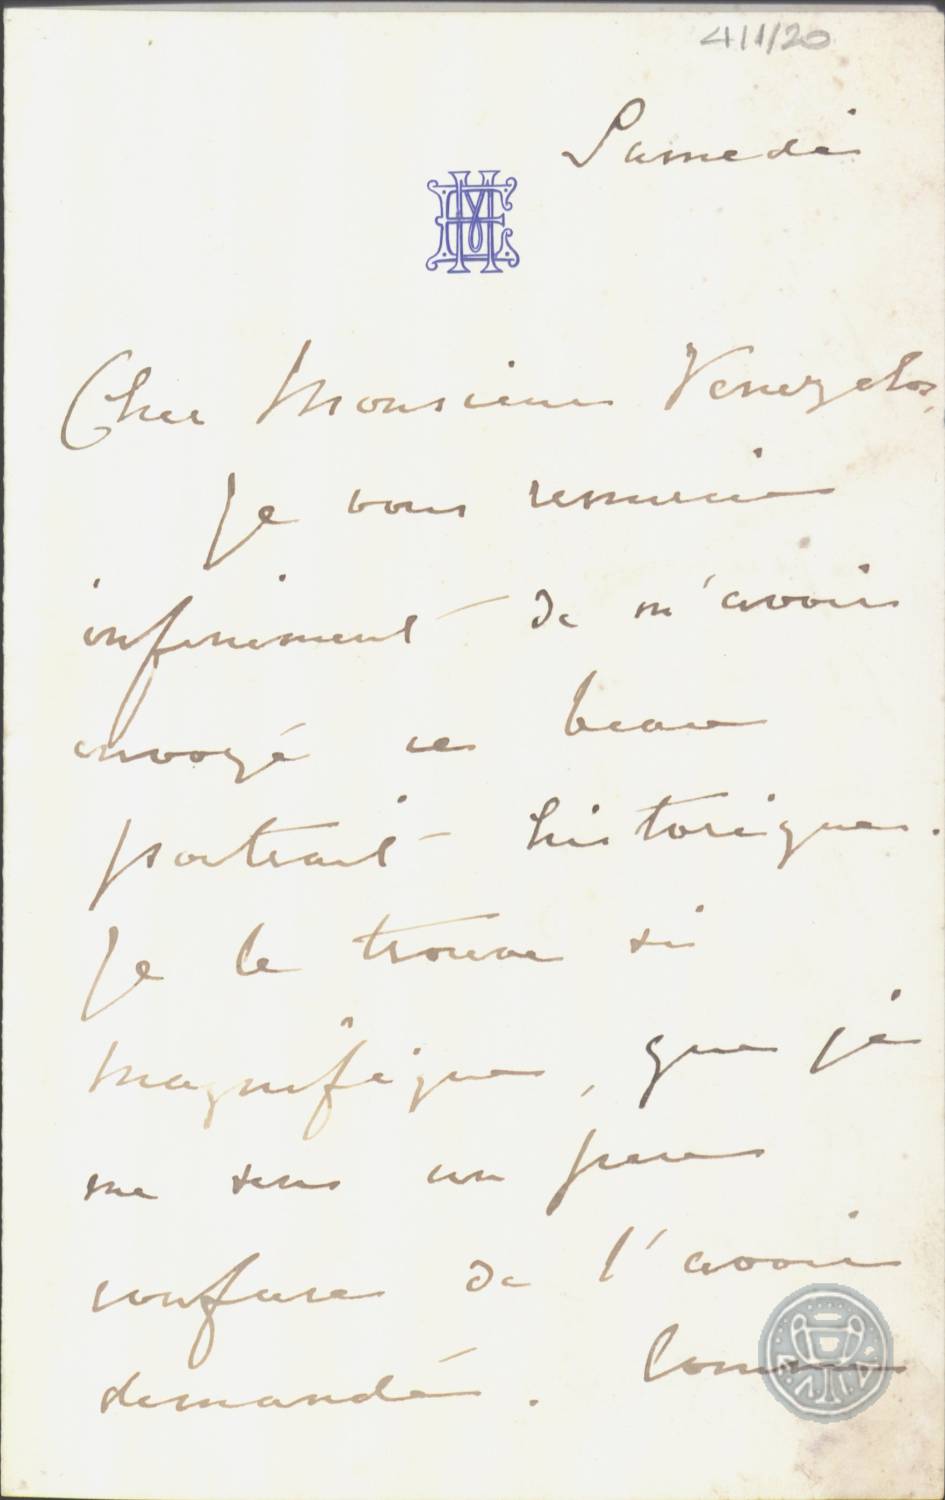 4/1/20
Samedi
Cher Monsieur Venezelos,
Je vous remercie
infiniment de m'avoir
envoyé ce beau
portrait historique.
Je le trouve si
magnifique, que je
me sens un peu
confuse de l'avoir
demandé. Comme